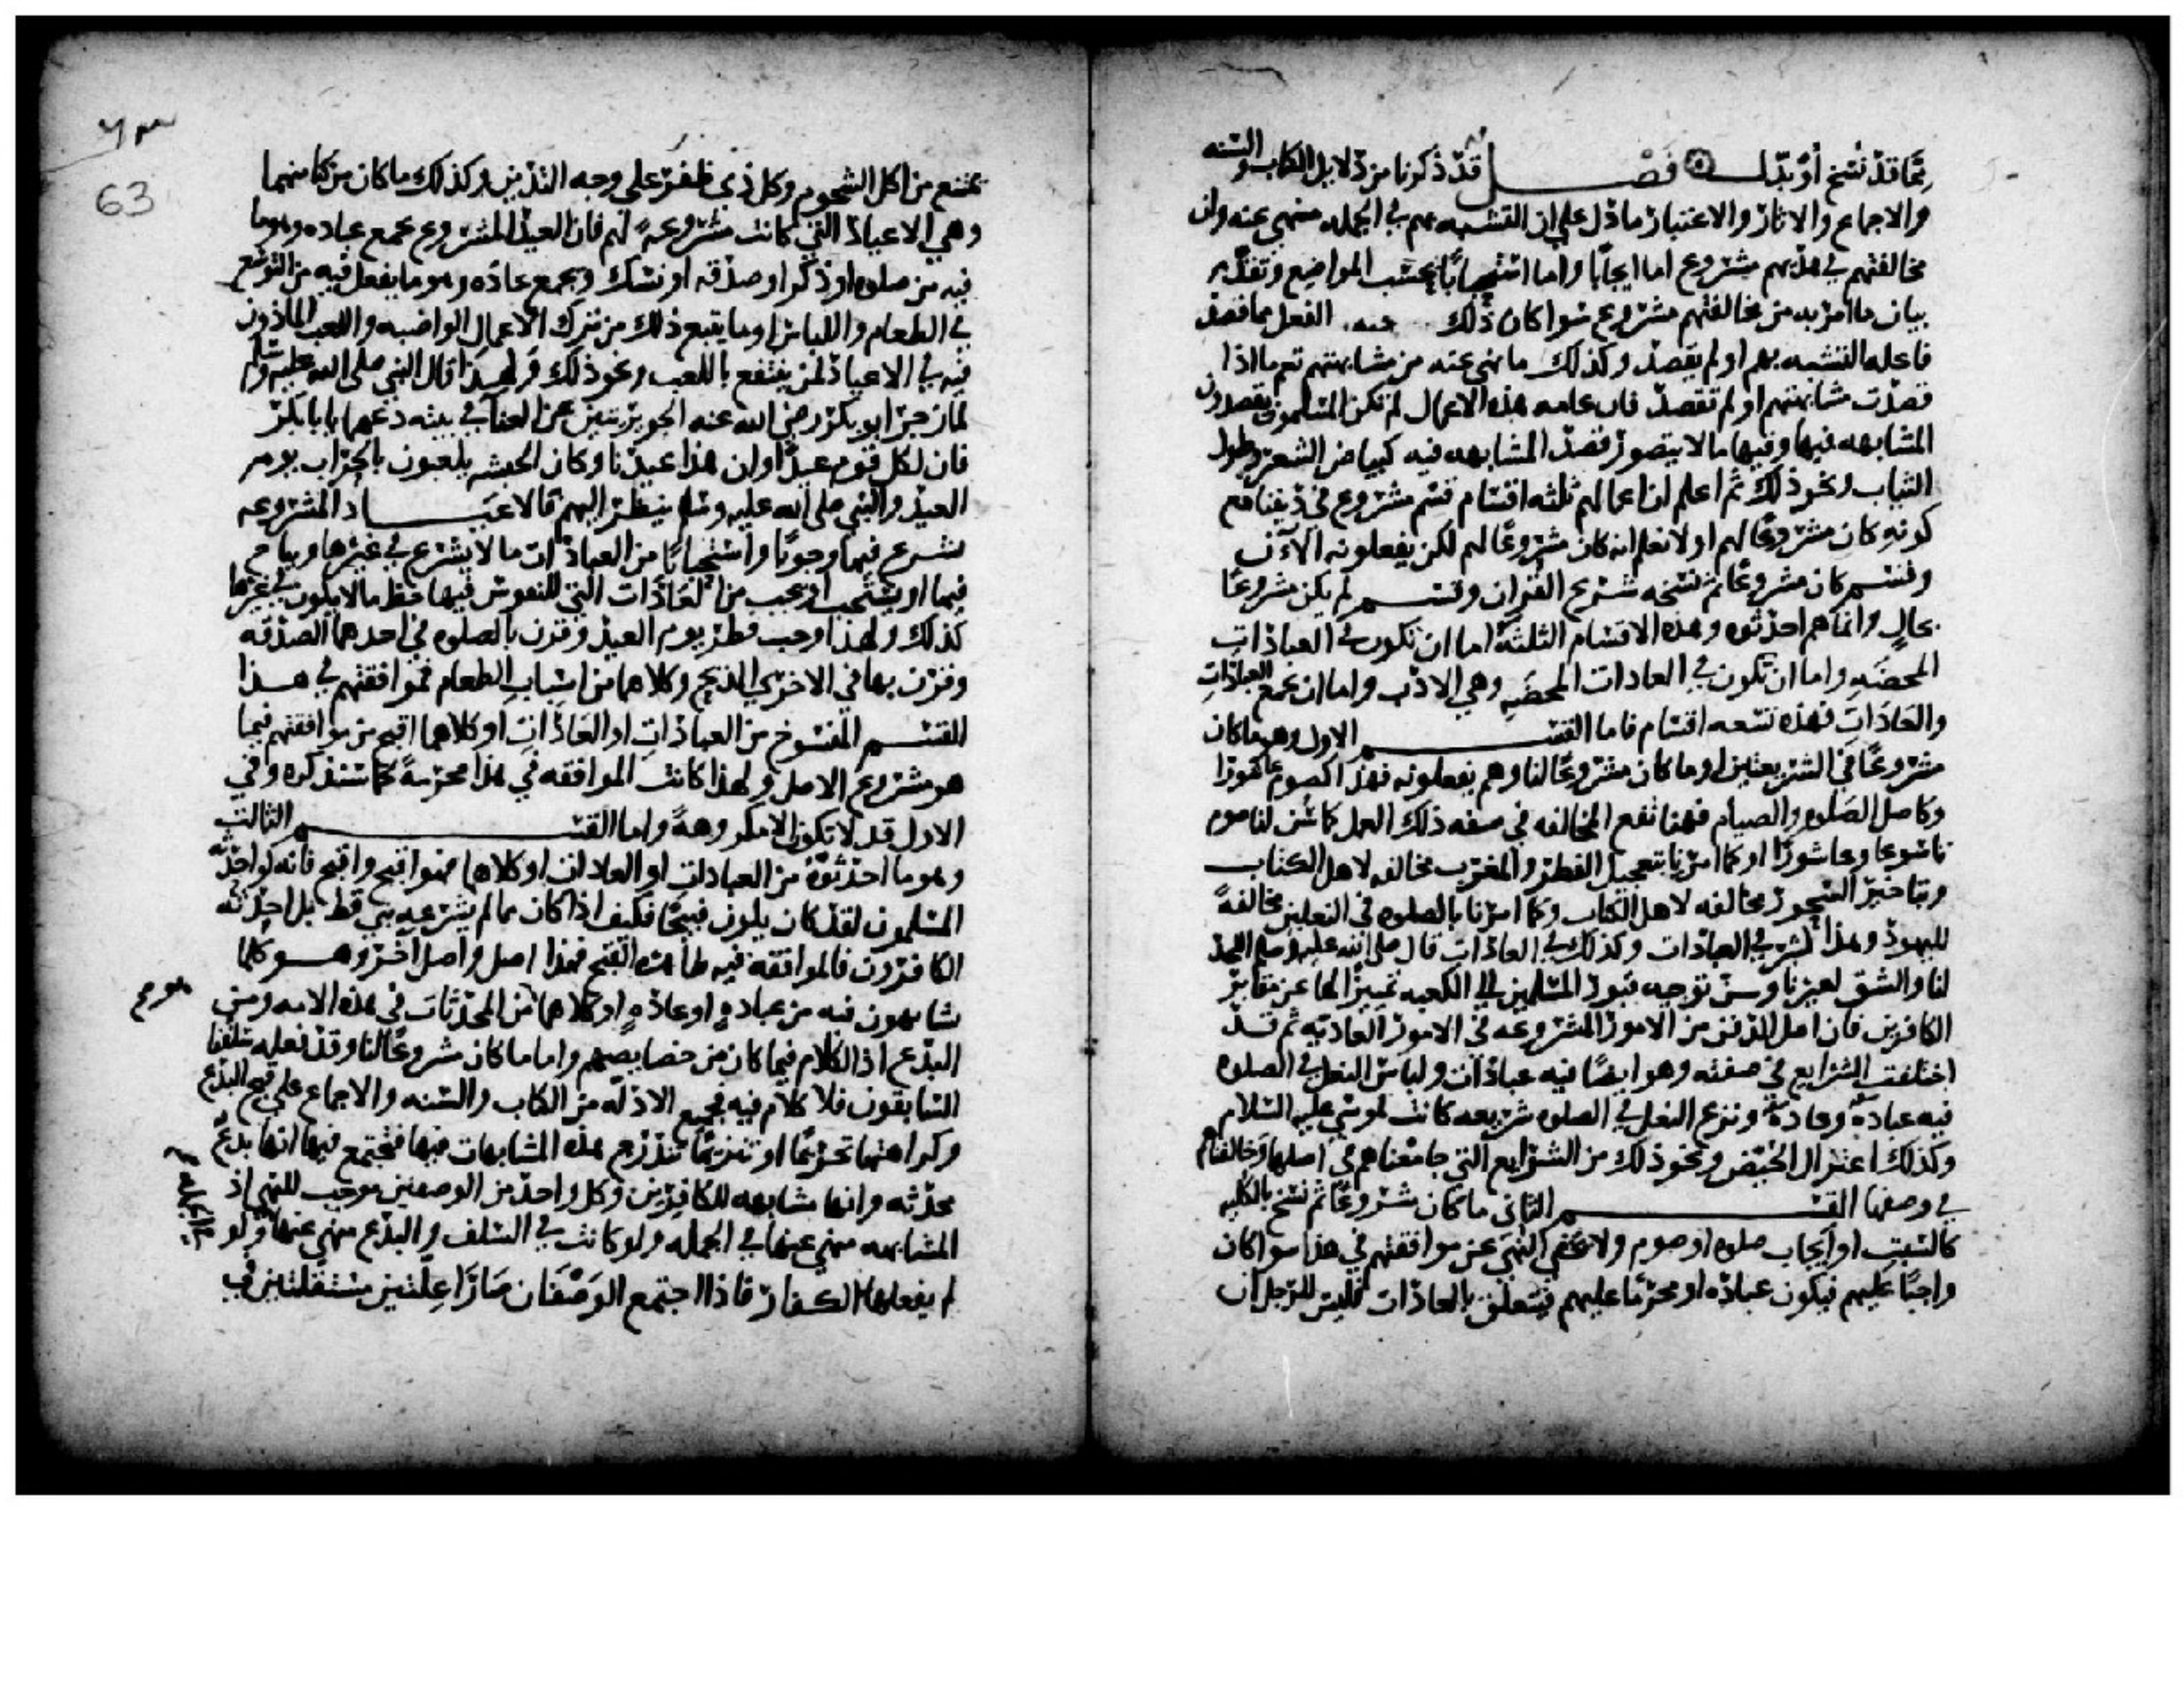 مما قد نسخ او بدل فصل قد ذكرنا من دلايل الكتاب والسنه
والاجماع والاثار والاعتبار ما دل على ان التشبه بهم في الجمله منهي عنه وان
مخالفتهم في هديهم مشروع اما ايجابا واما استحبابا بحسب المواضع وتقدم
بيان ما امر به من مخالفتهم مشروع سوا كان ذلك الفعل مما قصد
فاعله التشبه بهم او لم يقصد وكذلك ما نهي عنه من مشابهتهم تعم ما اذا
قصدت مشابهتهم او لم تقصد فان عامه هذه الاعمال لم تكن المسلمون يقصدون
المشابهه فيها وفيها ما لا يتصور قصد المشابهه فيه كبياض الشعر وطول
الشارب ونحو ذلك ثم اعلم ان اعمالهم ثلثه اقسام قسم مشروع في ديننا مع
كونه كان مشروعا لهم او لا نعلم انه كان مشروعا لهم لكن يفعلونه الان
وقسم كان مشروعا ثم نسخه شرع القران وقسم لم يكن مشروعا
بحال وانما هم احدثوه وهذه الاقسام الثلثة اما ان تكون في العبادات
المحضه واما ان تكون في العادات المحضه وهي الاداب واما ان تجمع العبادات
والعادات فهذه تسعه اقسام فاما القسم الاول وهو ما كان
مشروعا في الشريعتين او ما كان مشروعا لنا وهم يفعلونه فهذا كصوم عاشورا
وكاصل الصلوه والصيام فهنا تقع المخالفه في صفه ذلك العمل كما سن لنا صوم
تاسوعا وعاشورا او كما امرنا بتعجيل الفطر والمغرب مخالفه لاهل الكتاب
وبتاخير السحور مخالفه لاهل الكتاب وكما امرنا بالصلوه في النعلين مخالفة
لليهود وهذا كثير في العبادات وكذلك في العادات قال صلى الله عليه وسلم اللحد
لنا والشق لغيرنا وسن توجيه قبور المسلمين الى الكعبه تمييزا لها عن مقابر
الكافرين فان اصل الدفن من الامور المشروعه في الامور العاديه ثم قد
اختلفت الشرايع في صفته وهو ايضا فيه عبادات ولباس النعل في الصلوه
فيه عبادة وعادة ونزع النعل في الصلوه شريعه كانت لموسى عليه السلام
وكذلك اعتزال الحيض ونحو ذلك من الشرايع التي جامعناهم في اصلها وخالفناهم
في وصفها القسم الثاني ما كان مشروعا ثم نسخ بالكليه
كالسبت او ايجاب صلوه او صوم ولا يخفى النهي عن موافقتهم في هذا سوا كان
واجبا عليهم فيكون عباده او محرما عليهم فيتعلق بالعادات فليس للرجل ان
٦٣
63
يمتنع من اكل الشحوم وكل ذي ظفر على وجه التدين وكذلك ما كان مركبا منهما
وهي الاعياد التي كانت مشروعة لهم فان العيد المشروع يجمع عباده وهو ما
فيه من صلوه او ذكر او صدقه او نسك ويجمع عاده وهو ما يفعل فيه من التوسع
في الطعام واللباس او ما يتبع ذلك من ترك الاعمال الواضبه واللعب الماذون
فيه في الاعياد لمن ينتفع باللعب ونحو ذلك ولهذا قال النبي صلى الله عليه وسلم
لما زجر ابو بكر رضي الله عنه الجويريتين عن الغنا في بيته دعهما يا بابكر
فان لكل قوم عيدا وان هذا عيدنا وكان الحبشه يلعبون بالحراب يوم
العيد والنبي صلى الله عليه وسلم ينظر اليهم فالاعياد المشروعه
يشرع فيها وجوبا واستحبابا من العبادات ما لا يشرع في غيرها ويباح
فيها او يستحب او يجب من العادات التي للنفوس فيها حظ ما لا يكون في غيرها
كذلك ولهذا وجب فطر يوم العيد وقرن بالصلوه في احدهما الصدقه
وقرن بها في الاخرى الذبح وكلاهما من اسباب الطعام فموافقتهم في هذا
القسم المنسوخ من العبادات او العادات او كلاهما اقبح من موافقتهم فيما
هو مشروع الاصل ولهذا كانت الموافقه في هذا محرمة كما سنذكره وفي
الاول قد لا تكون الا مكروهة واما القسم الثالث
وهو ما احدثوه من العبادات او العادات او كلاهما فهو اقبح واقبح فانه لو احدثه
المسلمون لقد كان يكون قبيحا فكيف اذا كان مما لم يشرعه نبي قط بل احدثه
الكافرون فالموافقه فيه ظاهره القبح فهذا اصل واصل اخر وهو كلما
يشابهون فيه من عباده او عاده او كلاهما من المحدثات في هذه الامه ومن
البدع اذ الكلام فيما كان من خصايصهم واما ما كان مشروعا لنا وقد فعله سلفنا
السابقون فلا كلام فيه فجميع الادله من الكتاب والسنه والاجماع على قبح البدع
وكراهتها تحريما او تنزيها تندرج هذه المشابهات فيها فيجتمع فيها انها بدع
محدثه وانها مشابهه للكافرين وكل واحد من الوصفين موجب للنهي اذ
المشابهه منهي عنها في الجمله ولو كانت في السلف والبدع منهي عنها ولو
لم يفعلها الكفار فاذا اجتمع الوصفان صارا علتين مستقلتين في